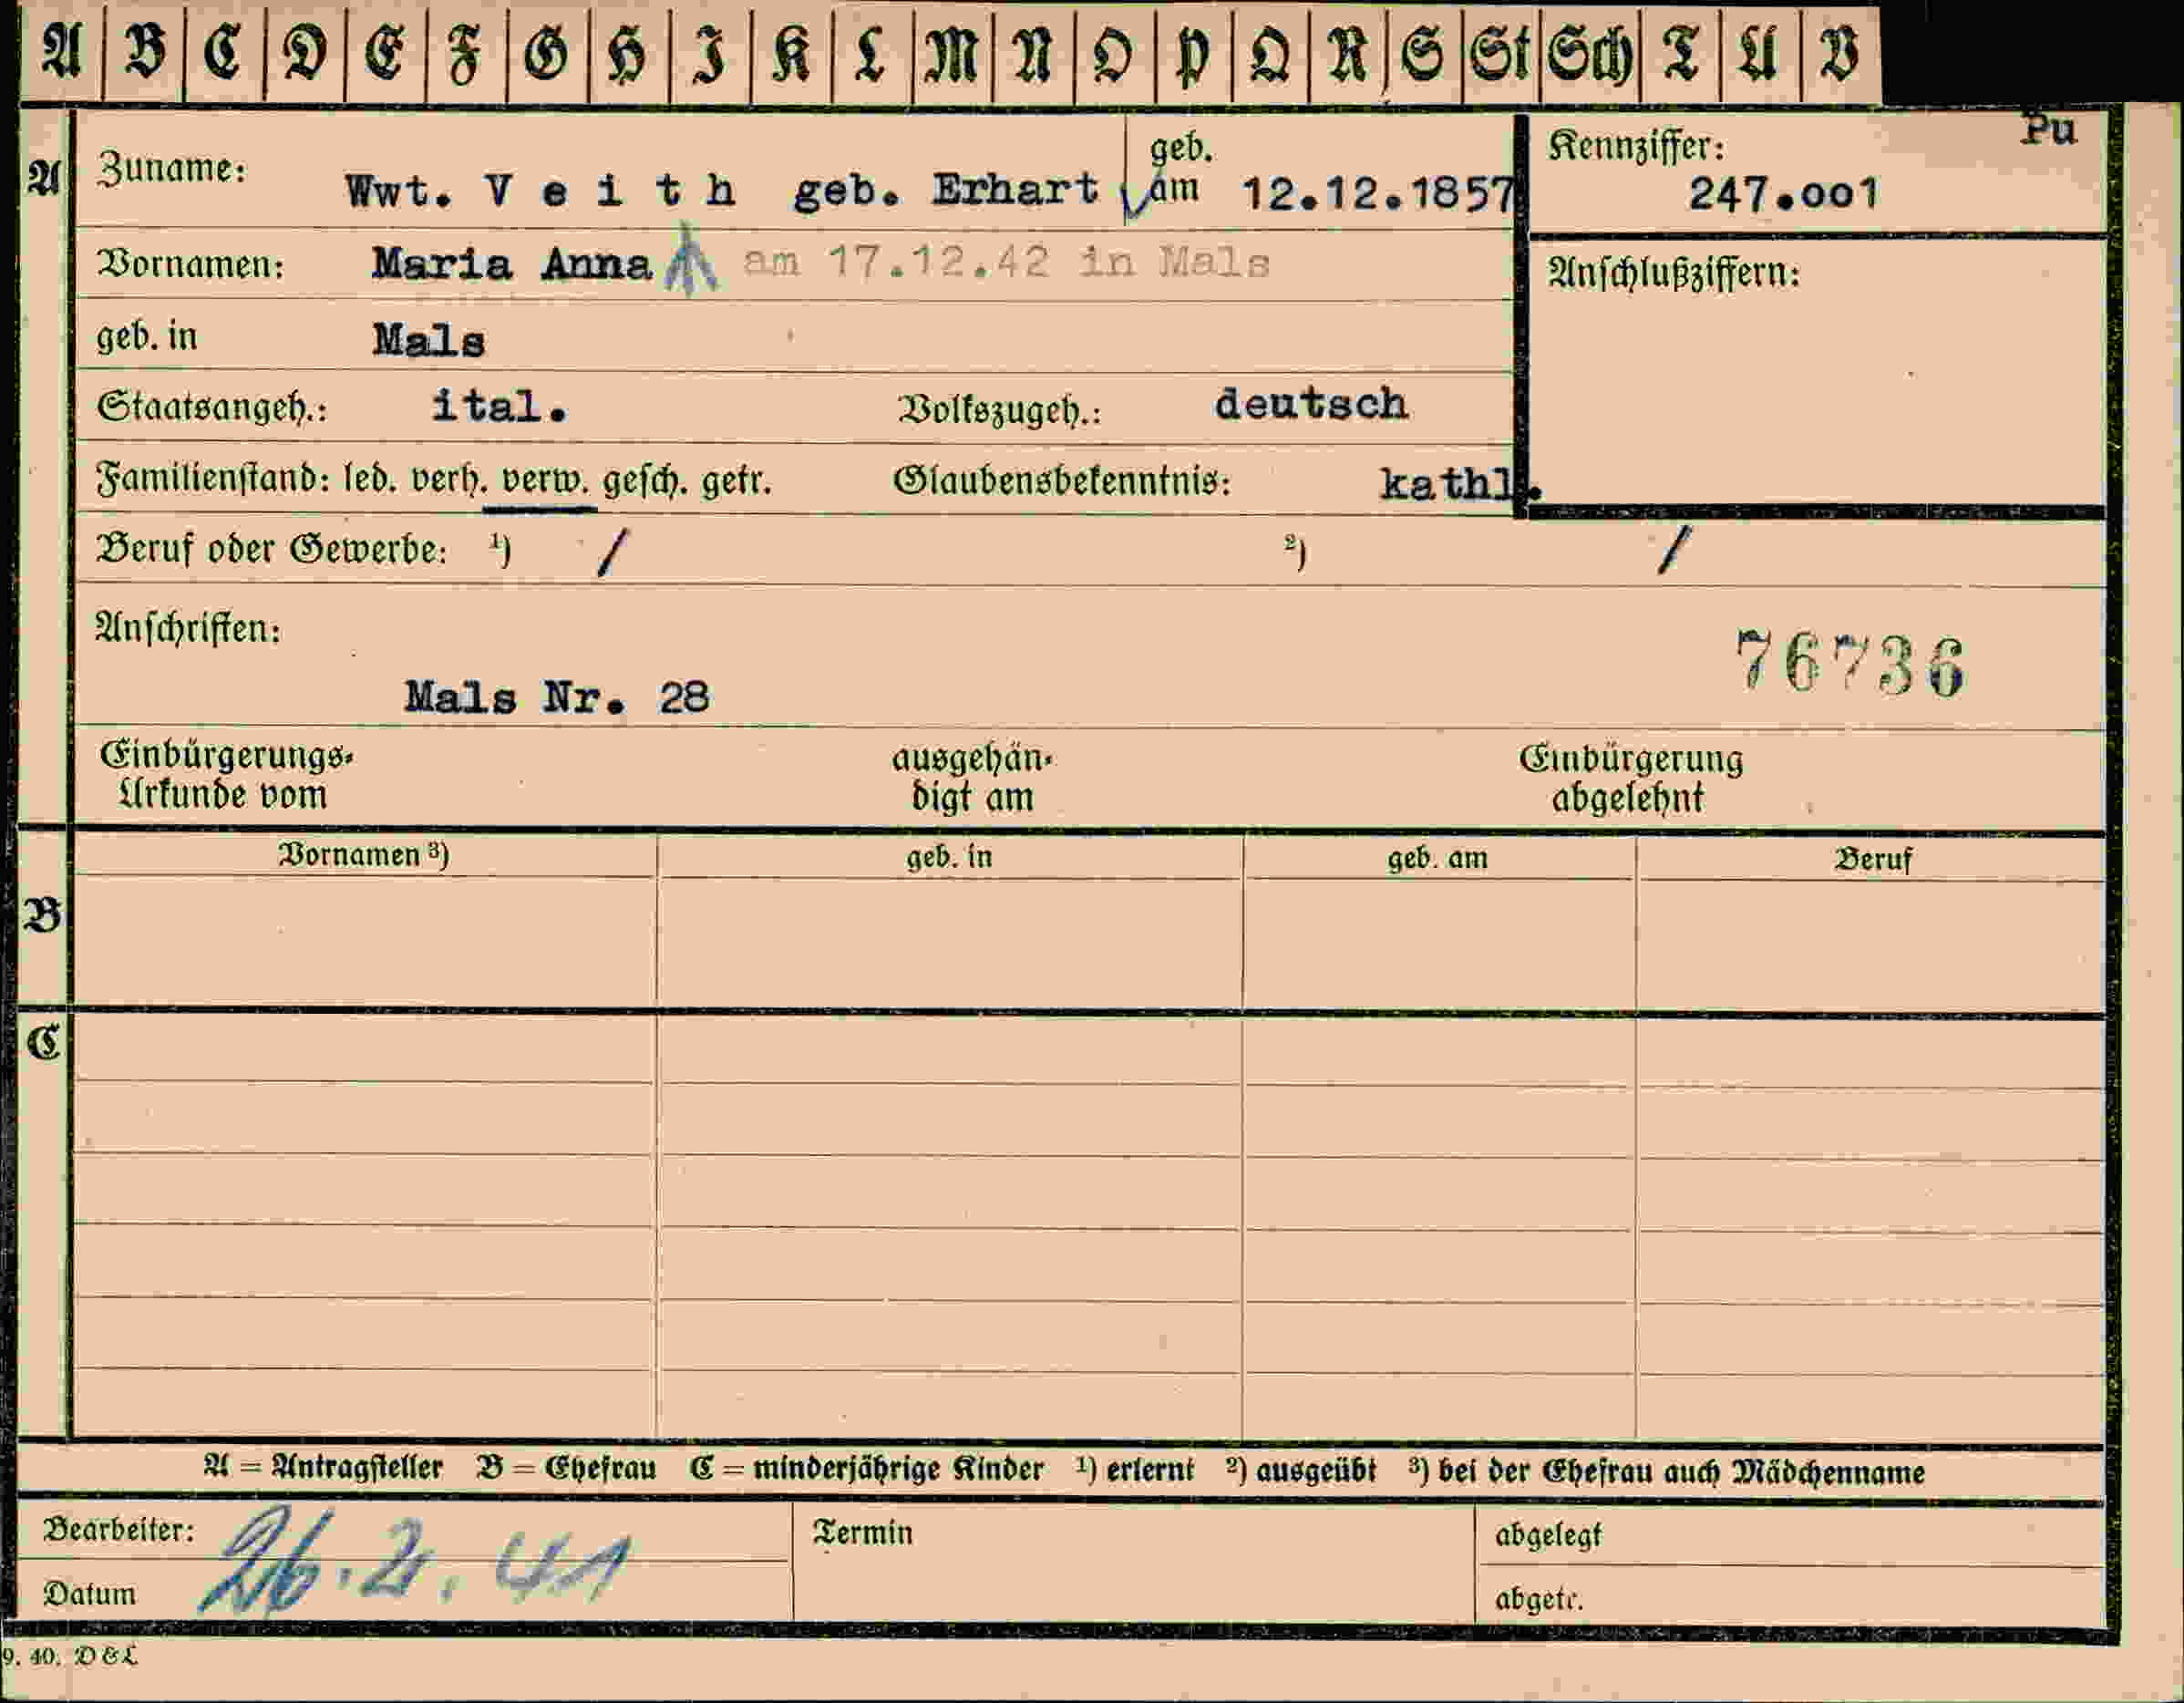 A B C D E F G H I K L M N O P Q R S St Sch T U V
Pu
A Zuname: Wwt. V e i t h geb. Erhart geb. am 12.12.1857
Kennziffer: 247.oo1
Vornamen: Maria Anna am 17.12.42 in Mals
Anschlußziffern:
geb. in Mals
Staatsangeh.: ital. Volkszugeh.: deutsch
Familienstand: led. verh. verw. gesch. getr. Glaubensbekenntnis: kathl.
Beruf oder Gewerbe: ¹) / ²) /
Anschriften:
76736
Mals Nr. 28
Einbürgerungs-
Urkunde vom
ausgehän-
digt am
Einbürgerung
abgelehnt
Vornamen ³) geb. in geb. am Beruf
B
C
A = Antragsteller B = Ehefrau C = minderjährige Kinder ¹) erlernt ²) ausgeübt ³) bei der Ehefrau auch Mädchenname
Bearbeiter: Termin abgelegt
Datum 26.2.41 abgetr.
9. 40. D & L